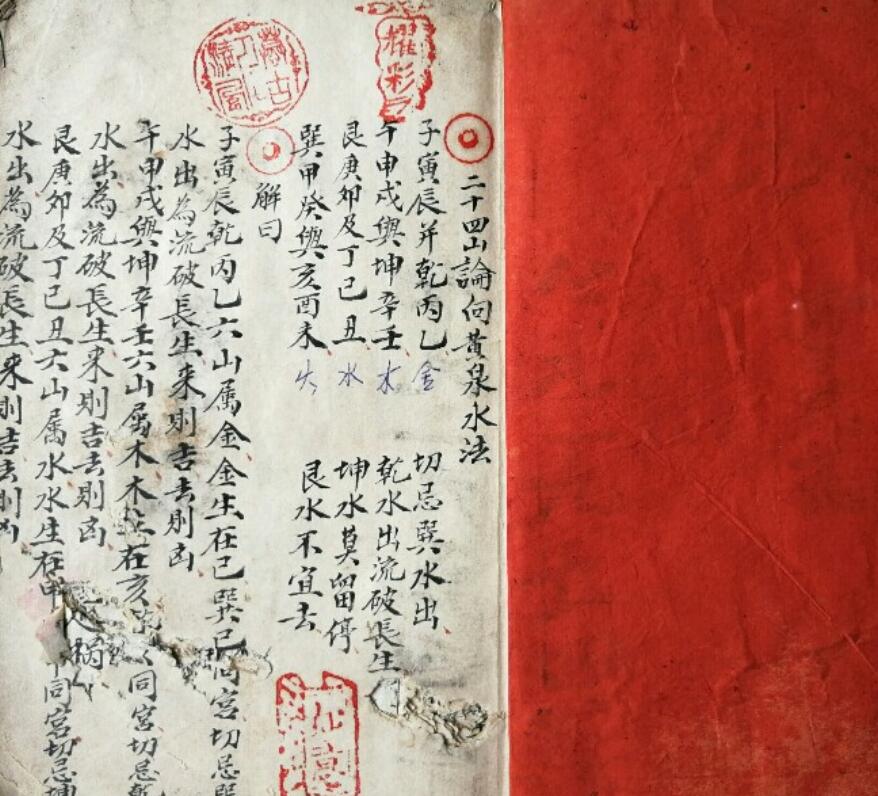 二十四山論向黃泉水法
子寅辰并乾丙乙 金 切忌巽水出
午申戌與坤辛壬 木 乾水出流破長生
艮庚卯及丁己丑 水 坤水莫留停
巽甲癸與亥酉未 火 艮水不宜去
解曰
子寅辰乾丙乙六山属金金生在已巽已同宮切忌巽
水出為流破長生来則吉去則凶
午申戌與坤辛壬六山属木木在亥同宮切忌乾
水出為流破長生来則吉去則凶
艮庚卯及丁已丑六山属水水生在申同宮切忌坤
水出為流破長生来則吉去則凶
耀彩